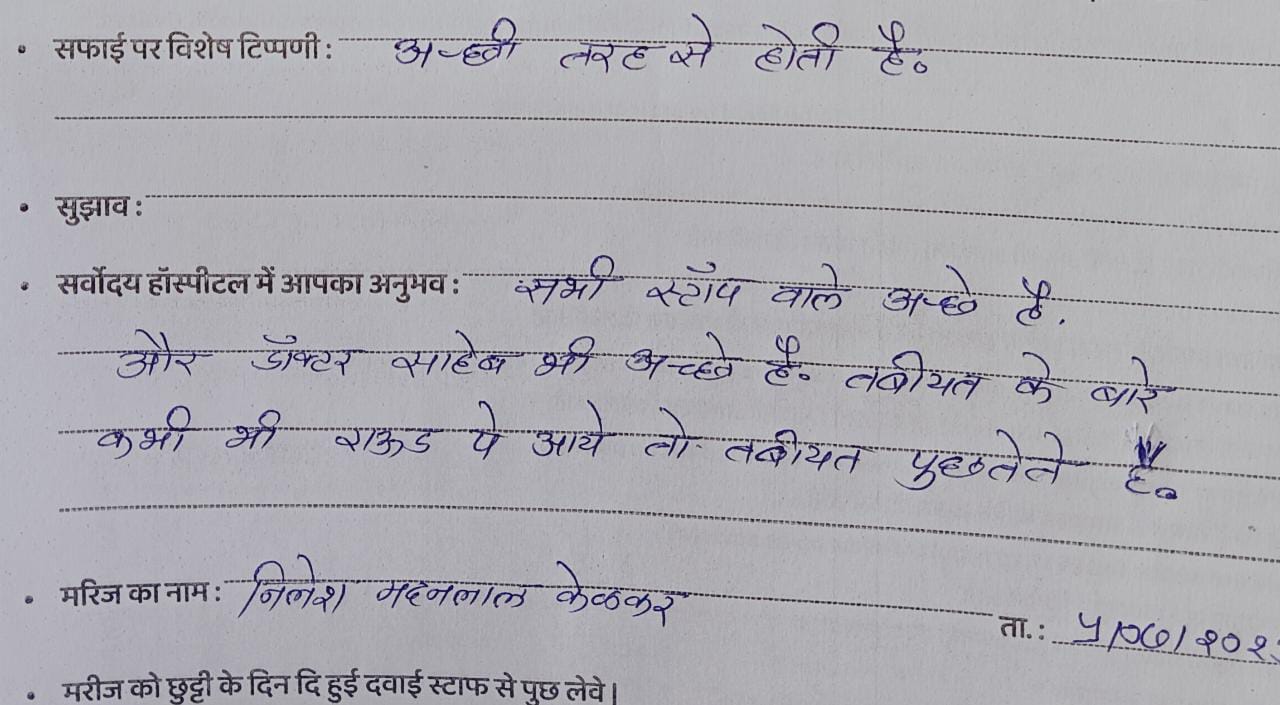 • सफाई पर विशेष टिप्पणी : अच्छी तरह से होती है.
• सुझाव :
• सर्वोदय हॉस्पीटल में आपका अनुभव : सभी स्टॉप वाले अच्छे है.
और डॉक्टर साहेब भी अच्छे है. तबीयत के बारे
कभी भी राऊड पे आये तो तबीयत पुछतेते है.
• मरिज का नाम : निलेश मदनलाल केळकर
ता.: ५/०७/२०२
• मरीज को छुट्टी के दिन दि हुई दवाई स्टाफ से पुछ लेवे।